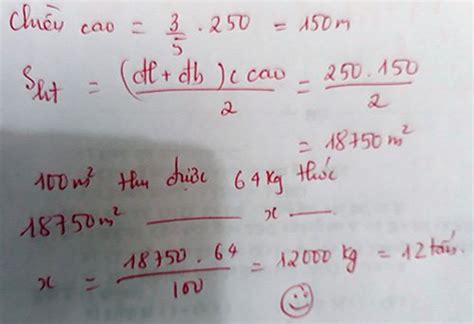 Chiều cao = 3/5 . 250 = 150m
Sht = (đl + đb) c cao / 2 = 250 . 150 / 2
= 18750 m²
100m² thu được 64 kg thóc
18750m² ——— x ——
x = 18750 . 64 / 100 = 12000 kg = 12 tấn.